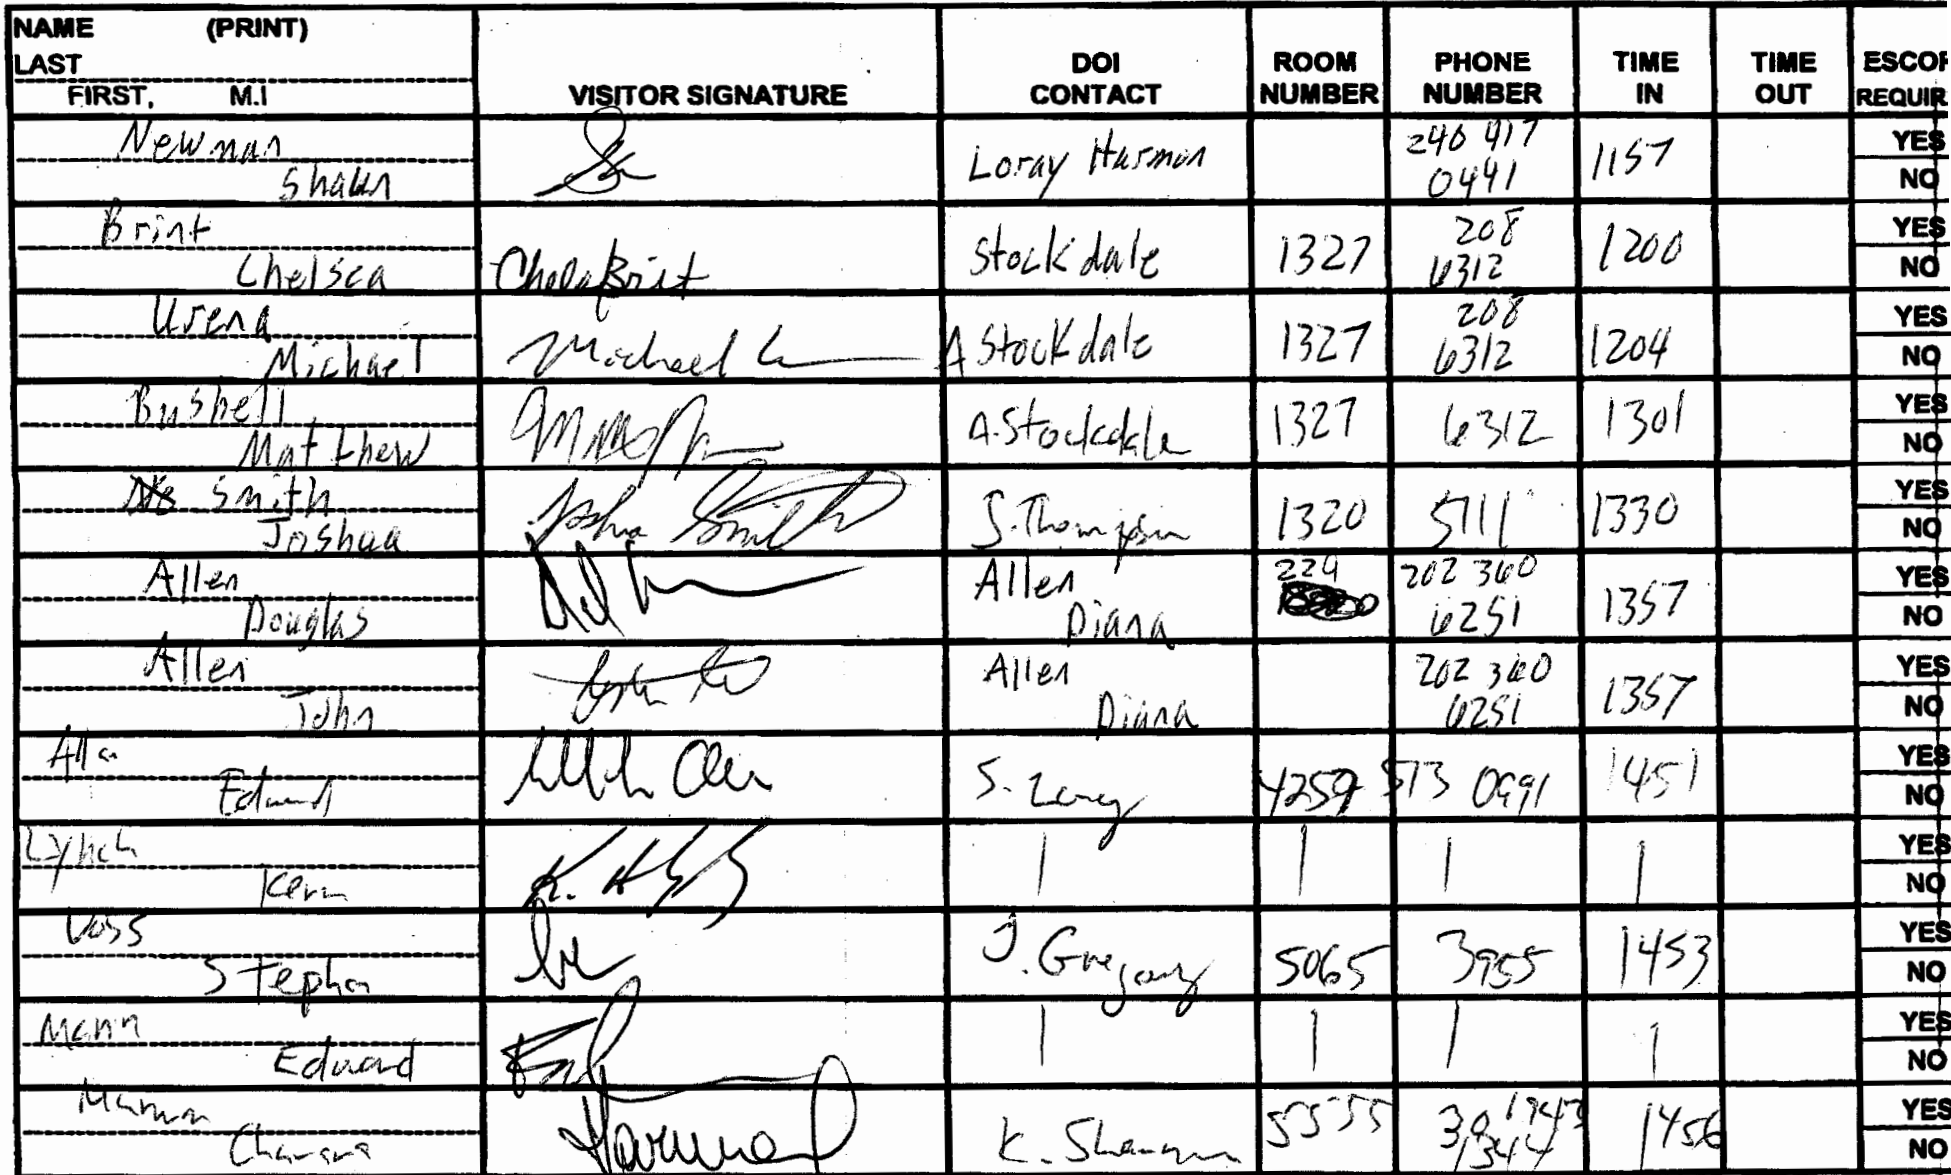 NAME (PRINT)
LAST
FIRST, M.I
VISITOR SIGNATURE
DOI CONTACT
ROOM NUMBER
PHONE NUMBER
TIME IN
TIME OUT
ESCOR REQUIR
Newman
Shaun
Loray Harmon
240 917
0441
1157
YES
NO
Brint
Chelsea
Chelsea Brint
Stockdale
1327
208
6312
1200
YES
NO
Urena
Michael
Michael
A Stockdale
1327
208
6312
1204
YES
NO
Bushell
Matthew
A. Stockdale
1327
6312
1301
YES
NO
Smith
Joshua
Joshua Smith
S. Thompson
1320
5711
1330
YES
NO
Allen
Douglas
Allen
Diana
229
202 360
6251
1357
YES
NO
Allen
John
Allen
Diana
202 360
6251
1357
YES
NO
Edward
S.
4259
513 0991
1451
YES
NO
Lynch
Kevin
|
|
|
|
YES
NO
Voss
Stephan
J. Gregory
5065
3955
1453
YES
NO
Mann
Edward
|
|
|
|
YES
NO
K.
5555
1456
YES
NO